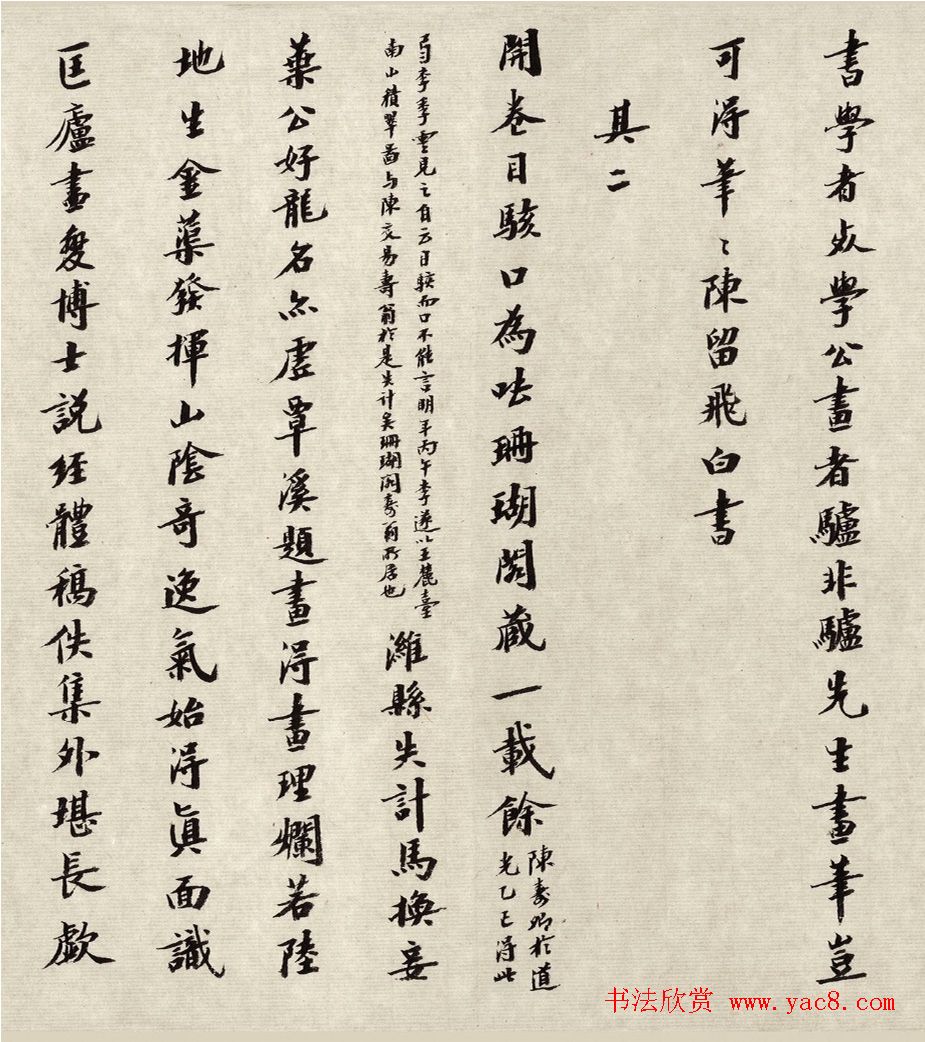 書學者學公畫者驢非驢先生畫筆豈
可得筆〻陳留飛白書
其二
開卷目駭口為呿珊瑚閣藏一載餘
陳壽卿於道
光乙巳得此
李季雲見之自云目駭而口不能言明年丙午李遂以王麓臺
南山積翠啚与陳交易壽翁於是失計矣珊瑚閣壽翁所居也
濰縣失計馬換妾
葉公好龍名亦虛覃溪題畫得畫理爛若陸
地生金蕖發揮山陰奇逸氣始得真面識
匡廬畫叟博士説經體稿佚集外堪長歔
书法欣赏 www.yac8.com